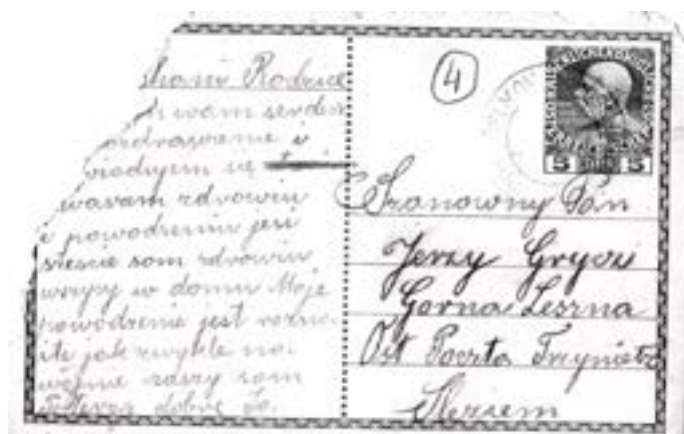 chani Rodzice
wam serdecz
ozdrawienie i
wiadujem się
wavam zdrowiu
i powodzeniu jesi
sieście som zdrowiu
wszyscy w domu Moje
powodzenie jest rozma
ite jak zwykle na
wojnie razy som
dobre
4
5 5
Szanowny Pan
Jerzy Gryczi
Gorna Leszna
Ost Poczta Trzynietz